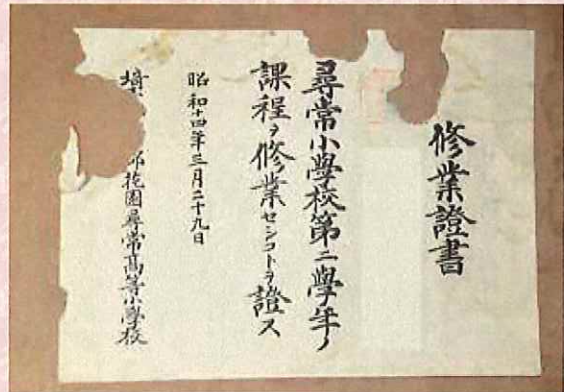 修業證書
尋常小學校第二學年ノ
課程ヲ修業セシコトヲ證ス
昭和十四年三月二十九日
埼 郡花園尋常高等小學校